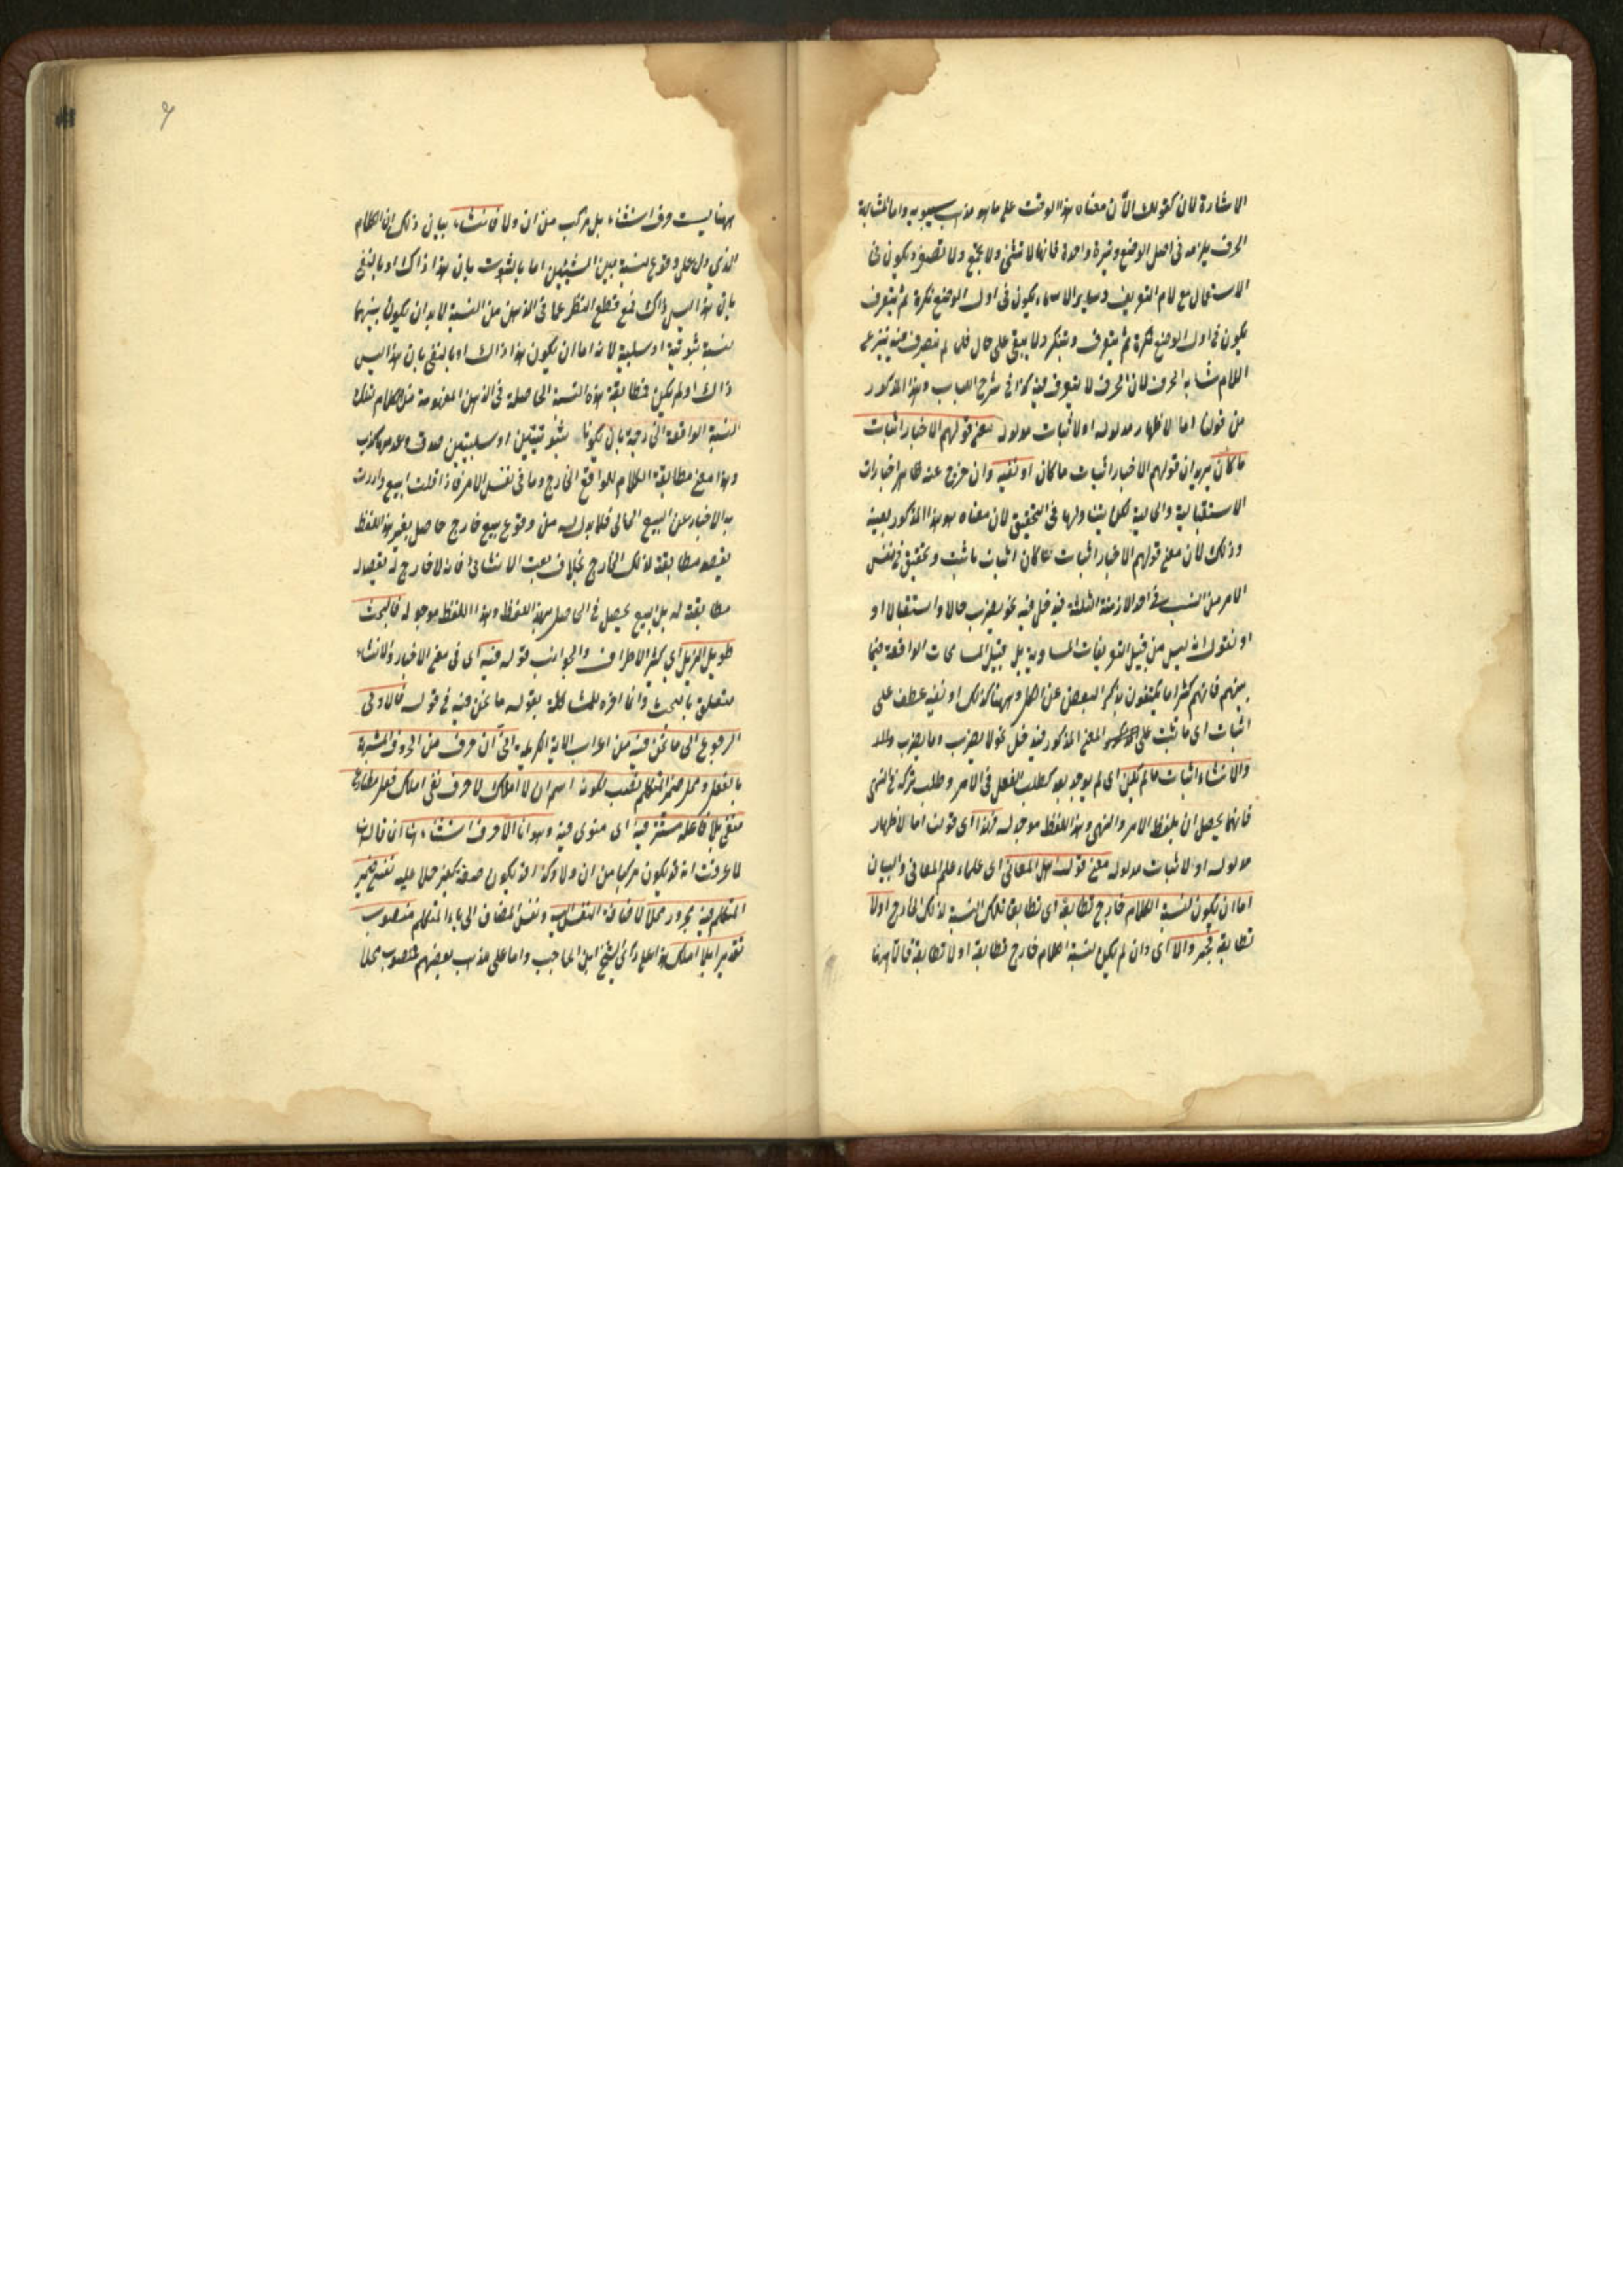 الاشارة لان كقولك الآن معناه هذا الوقت على ما هو مذهب سيبويه واما لمشابهة
الحرف يلزمه فى اصل الوضع وتيرة واحدة فانها لا تثنى ولا تجمع ولا تصغر ويكون فى
الاستعمال مع لام التعريف وساير الاسماء يكون فى اول الوضع نكرة ثم يتعرف
يكون فى اول الوضع نكرة ثم يتعرف ويتنكر ولا يبقى على حال فلما لم يتصرف فيه بنزع
اللام شابه الحرف لان الحرف لا يتصرف فيه كذا فى شرح اللباب وهذا المذكور
من قولنا اما لاظهار مدلوله او لاثبات مدلوله معنى قولهم الاخبار اثبات
ما كان يريد ان قولهم الاخبار اثبات ما كان او نفيه وان خرج عنه ظاهر اخبارات
الاستقبالية والحالية لكن يتناولها فى التحقيق لان معناه هو هذا المذكور بعينه
وذلك لان معنى قولهم الاخبار اثبات ما كان اثبات ما ثبت وتحقق فى نفس
الامر من النسب فى احد الازمنة الثلثة فيدخل فيه نحو يضرب حالا واستقبالا او
او نقول انه ليس من قبيل التعريفات المساوية بل قبيل المسامحات الواقعة فيما
بينهم فانهم كثيرا ما يكتفون بذكر البعض عن الكل وههنا كذلك او نفيه عطف على
اثبات اى ما ثبت على المعنى المذكور فيدخل نحو لا يضرب وما يضرب
والانشاء اثبات ما لم يكن اى لم يوجد بعد كطلب الفعل فى الامر وطلب تركه فى النهى
فانهما يحصلان بلفظ الامر والنهى وهذا اللفظ موجد له فهذا اى قولنا اما لاظهار
مدلوله او لاثبات مدلوله معنى قول اهل المعانى اى علماء علم المعانى والبيان
اما ان يكون لنسبة الكلام خارج تطابقه اى تطابق تلك النسبة لذلك الخارج اولا
تطابقه فخبر والا اى وان لم يكن لنسبة الكلام خارج تطابقه او لا تطابقه فالا ههنا
ههنا ليست حرف استثناء بل مركب من ان ولا فانشاء بيان ذلك ان الكلام
الذى دل على وقوع نسبة بين الشيئين اما بالثبوت بان هذا ذاك او بالنفى
بان هذا ليس ذاك فمع قطع النظر عما فى الذهن من النسبة لابد ان يكون بينهما
نسبة ثبوتية او سلبية لانه اما ان يكون هذا ذاك او بالنفى بان هذا ليس
ذاك اولم يكن فمطابقة هذه النسبة الحاصلة فى الذهن المفهومة من الكلام لتلك
النسبة الواقعة الخارجة بان يكونا ثبوتيتين او سلبيتين صدق وعدمها كذب
وهذا معنى مطابقة الكلام للواقع الخارج وما فى نفس الامر فاذا قلت ابيع واردت
به الاخبار عن البيع الحالى فلابد له من وقوع بيع خارج حاصل بغير هذا اللفظ
يقصد مطابقته لذلك الخارج بخلاف بعت الانشائى فانه لا خارج له يقصد
مطابقته له بل البيع يحصل فى الحاصل بهذا اللفظ وهذا اللفظ موجد له فالبحث
طويل الذيل اى كثير الاطراف والجوانب قوله فيه اى فى معنى الاخبار والانشاء
متعلق بالبحث وانما اخره للمشاكلة بقوله ما نحن فيه فى قوله فالاولى
الرجوع الى ما نحن فيه من اعراب الاية الكريمة انى ان حرف من الحروف المشبهة
بالفعل ومحل ضمير المتكلم نصب لكونه اسم ان لا املك لا حرف نفى املك فعل مضارع
منفى بلا فاعله مستتر فيه اى منوى فيه وهو انا الا حرف استثناء
لما عرفت انه قد يكون مركبا من ان ولا وكذا قد يكون صفة بمعنى غير حملا عليه نفسى ضمير
المتكلم فيه مجرور محلا لاضافة النفس اليه ونفس المضاف الى ياء المتكلم منصوب
تقديرا بلا املك هذا على راى الشيخ ابن الحاجب واما على مذهب بعضهم فمنصوب محلا